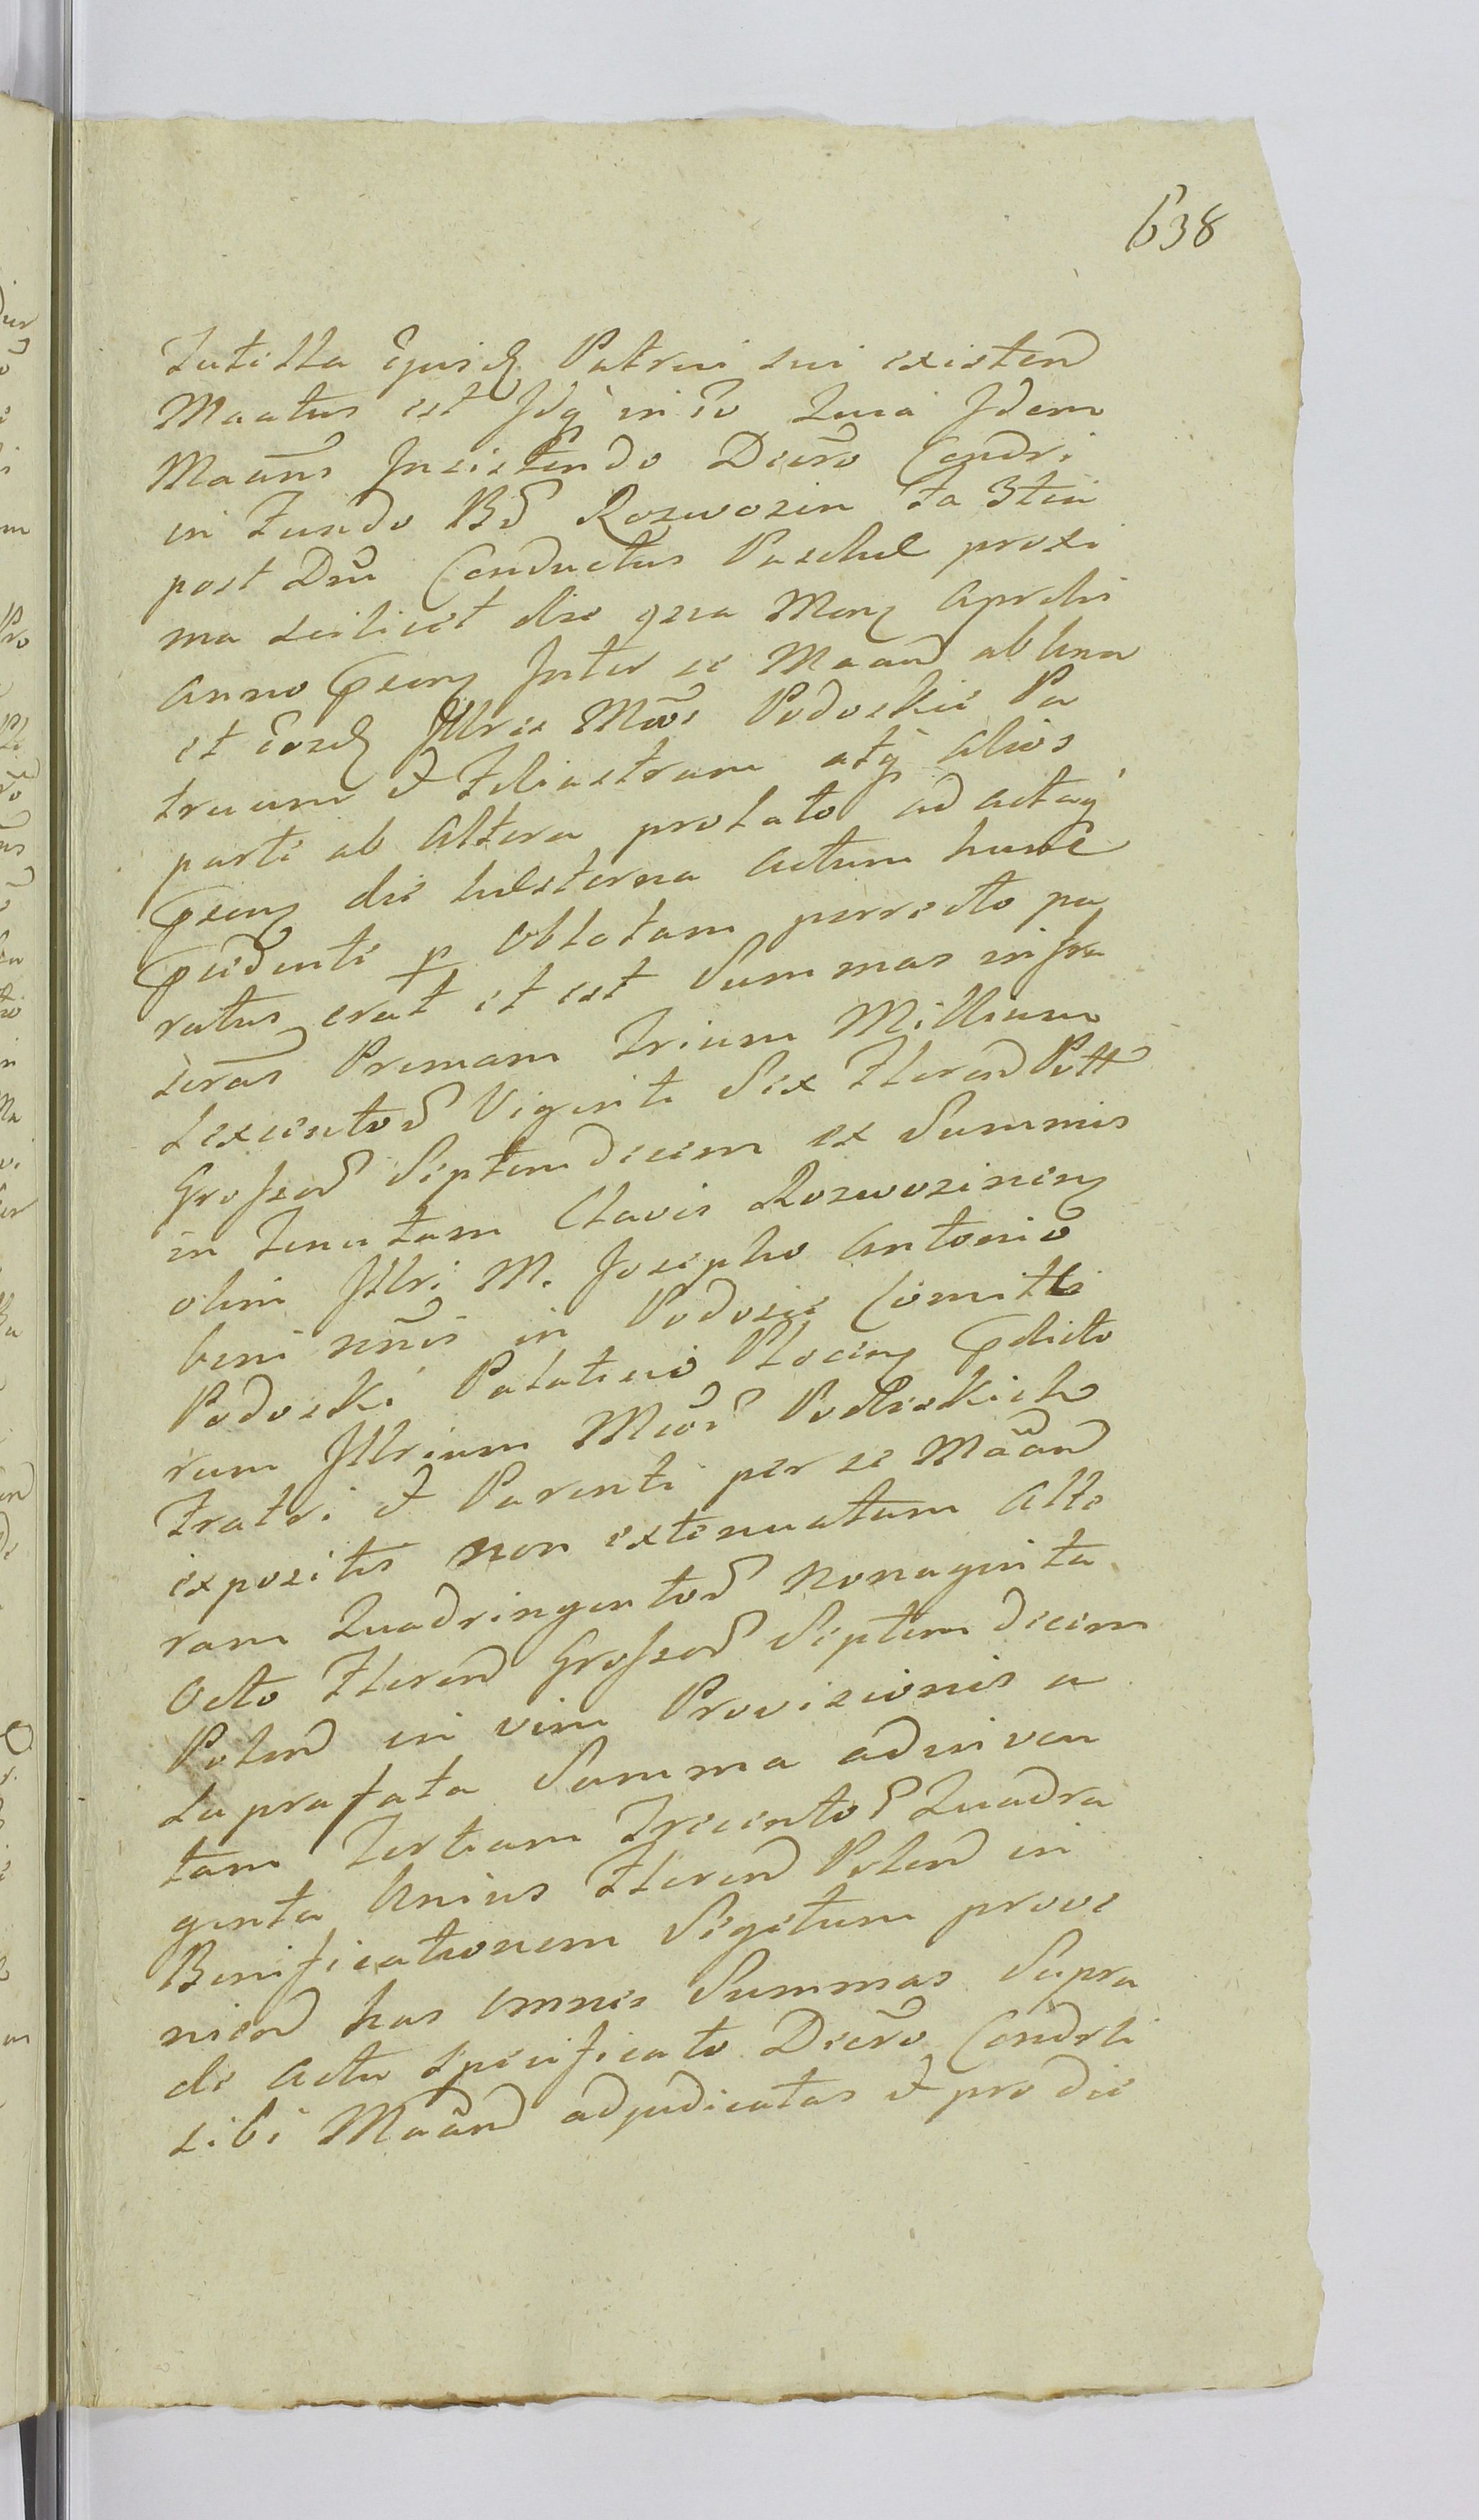 638
Tutilla Ejusd Patrui sui existen
Maatus est Idq in eo Quia Idem
Maans Insistendo Decro Condri
in Fundo B Rozwozin fa 3tia
post Dnu Conductus Paschae proxi
ma scilicet die 9na Mens Aprilis
Anno psens Inter se Maan ab una
et Eosd Illres Mcos Podoskie Pa
truum & Filiastram atq alios
parte ab Altera prolato ad Actaq
psens die hesterna Actum hunc
pcedente p Oblatam porrecto pa
ratus erat et est Summas infra
scras Primam Trium Millium
Sexcento Viginti Sex Floren Poll
Grosso Septemdecem ex Summis
in Tenutam Clavis Rozwozinens
olim Illri M. Josepho Antonio
bini nnis in Podosie Comitti
Podoski Palatino Plocens pdicto
rum Illrium Mco Podoskich
Fratri & Parenti per se Maan
expositis non extenuatam Alte
ram Quadringento Nonaginta
Octo Floren Grosso Septemdecem
Polon in vim Provisionis a
Suprafata Summa adinven
tam Tertiam Trecento Quadra
ginta Unius Floren Polon in
Bonificationem Segetum prove
nien has omnes Summas Supra
de Actu specificato Decro Condrli
sibi Maan adjudicatas & pro die